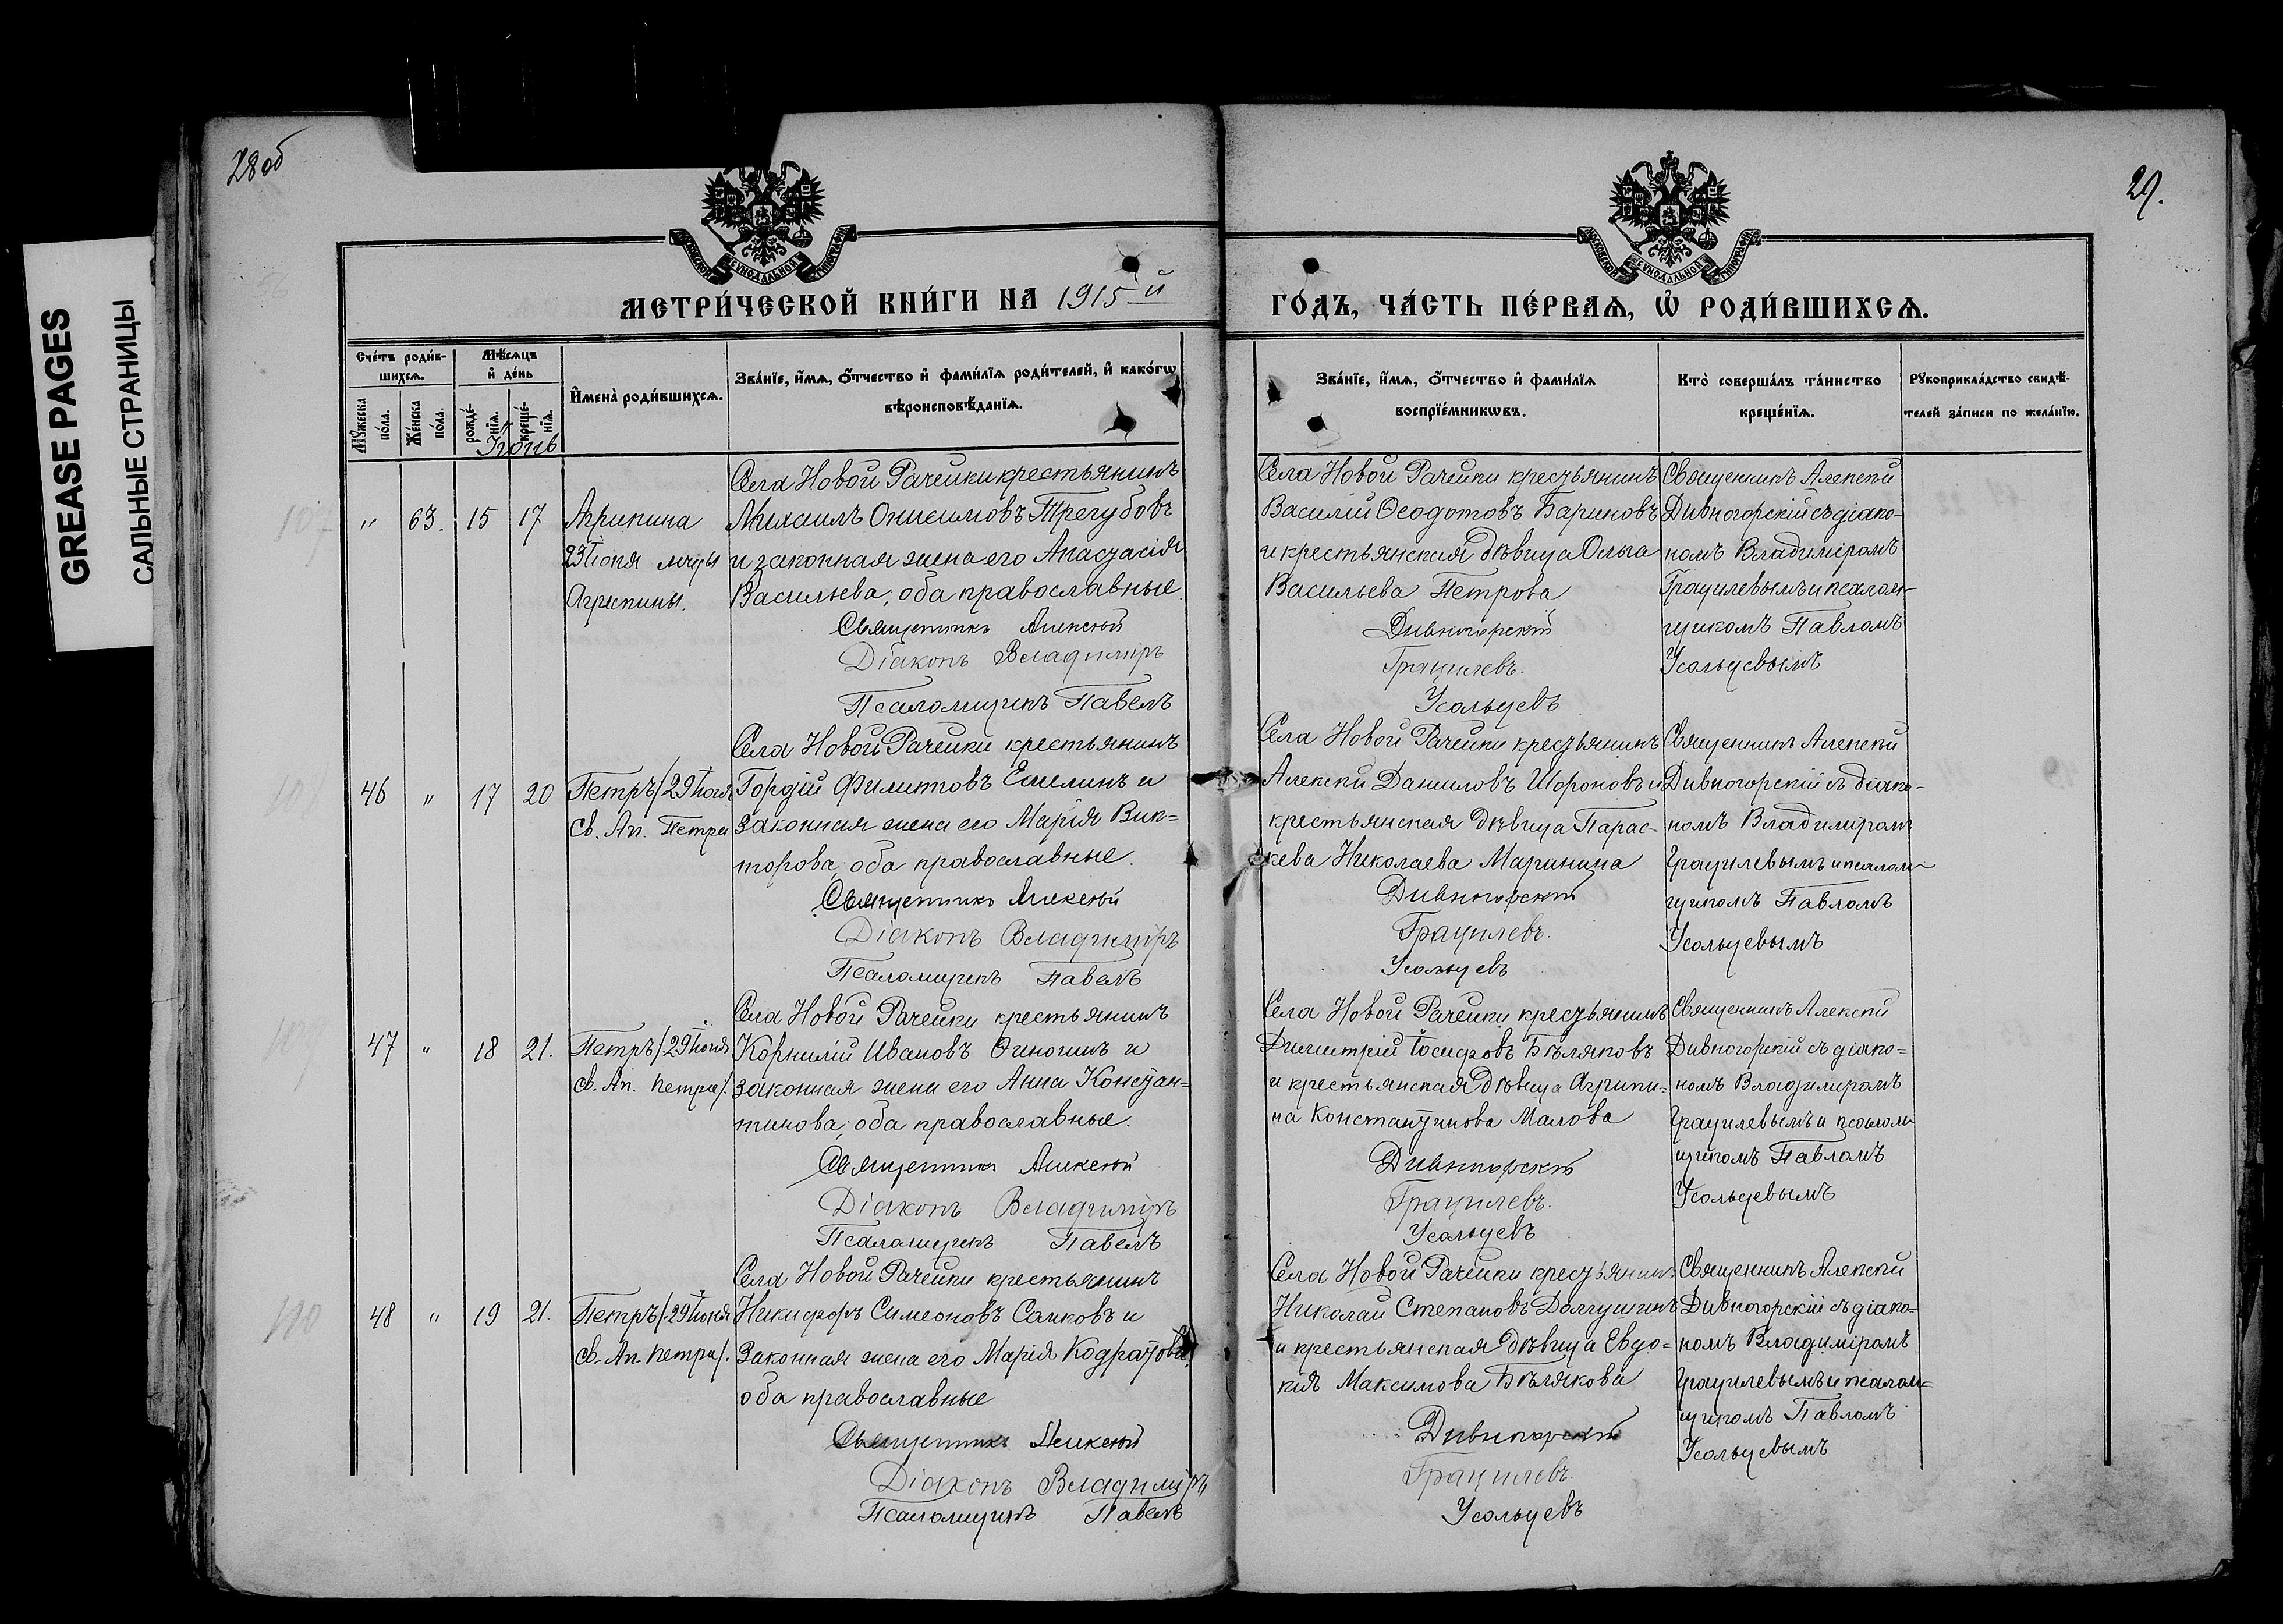 GREASE PAGES
САЛЬНЫЕ СТРАНИЦЫ
28 об
29.
МЕТРИ́ЧЕСКОЙ КНИ́ГИ НА 1915 й
ГО́ДЪ, ЧА́СТЬ ПЕ́РВАѦ, Ѡ РОДИ́ВШИХСѦ.
МОСКОВСКОЙ СѴНОДАЛЬНОЙ ТИПОГРАФІИ
МОСКОВСКОЙ СѴНОДАЛЬНОЙ ТИПОГРАФІИ
Сче́тъ роди́в-
шихсѧ.
Мѣ́сѧцъ
и҆ де́нь
Мꙋ́жеска
по́ла.
Же́нска
по́ла.
рожде́-
нїѧ.
креще́-
нїѧ.
И҆мена̀ роди́вшихсѧ.
Зва́нїе, и҆́мѧ, ѻ҆́тчество и҆ фами́лїѧ роди́телей, и҆ како́гѡ
вѣроисповѣ́данїѧ.
Зва́нїе, и҆́мѧ, ѻ҆́тчество и҆ фами́лїѧ
воспрїе́мникѡвъ.
Кто̀ соверша́лъ та́инство
креще́нїѧ.
Рꙋкоприкла́дство свидѣ́-
телей за́писи по жела́нїю.
Іюнь
107
" 63. 15 17
Агрипина
23 Іюня мчцы
Агрипины.
Села Новой Рачейки крестьянинъ
Михаилъ Онисимовъ Трегубовъ
и законная жена его Анастасія
Васильева, оба православные.
Священникъ Алексій
Діаконъ Владиміръ
Псаломщикъ Павелъ
Села Новой Рачейки крестьянинъ
Василій Ѳеодотовъ Бариновъ
и крестьянская дѣвица Ольга
Васильева Петрова
Дивногорскій
Грацилевъ.
Усольцевъ
Священникъ Алексій
Дивногорскій съ діако-
номъ Владиміромъ
Грацилевымъ и псалом-
щикомъ Павломъ
Усольцевымъ
46 " 17 20
Петръ /29 Іюня
Св. Ап. Петра
Села Новой Рачейки крестьянинъ
Гордій Филитовъ Емелинъ и
законная жена его Марія Вик=
торова, оба православные.
Священникъ Алексій
Діаконъ Владиміръ
Псаломщикъ Павелъ
Села Новой Рачейки крестьянинъ
Алексій Даниловъ Шороновъ и
крестьянская дѣвица Парас-
кева Николаева Маринина
Дивногорскій
Грацилевъ.
Усольцевъ
Священникъ Алексій
Дивногорскій съ діако-
номъ Владиміромъ
Грацилевымъ и псалом-
щикомъ Павломъ
Усольцевымъ
47 " 18 21.
Петръ /29 Іюня
св. Ап. Петра/.
Села Новой Рачейки крестьянинъ
Корнилій Ивановъ и
законная жена его Анна Констан=
тинова, оба православные.
Священникъ Алексій
Діаконъ Владиміръ
Псаломщикъ Павелъ
Села Новой Рачейки крестьянинъ
Димитрій Іосифовъ Бѣляковъ
и крестьянская дѣвица Агрипи=
на Константинова Малова
Дивногорскій
Грацилевъ.
Усольцевъ
Священникъ Алексій
Дивногорскій съ діако=
номъ Владиміромъ
Грацилевымъ и псалом-
щикомъ Павломъ
Усольцевымъ
110
48 " 19 21.
Петръ /29 Іюня
св. Ап. Петра/.
Села Новой Рачейки крестьянинъ
Никифоръ Симеоновъ Санковъ и
законная жена его Марія Кодратова,
оба православные
Священникъ Алексій
Діаконъ Владиміръ
Псаломщикъ Павелъ
Села Новой Рачейки крестьянинъ
Николай Степановъ Долгушинъ
и крестьянская дѣвица Евдо=
кія Максимова Бѣлякова
Дивногорскій
Грацилевъ.
Усольцевъ
Священникъ Алексій
Дивногорскій съ діако=
номъ Владиміромъ
Грацилевымъ и псалом=
щикомъ Павломъ
Усольцевымъ